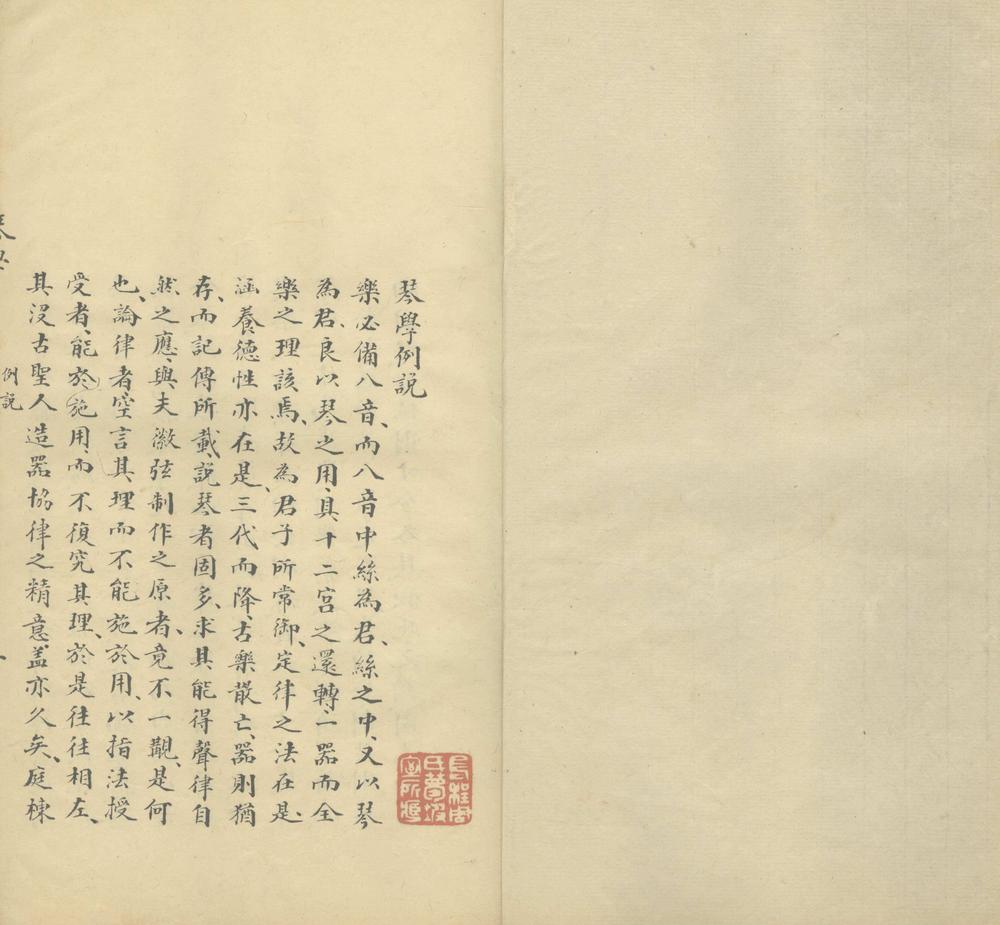 琴學例說
樂必備八音、而八音中、絲為君、絲之中、又以琴
為君、良以琴之用、具十二宮之還轉、一器而全
樂之理該焉、故為君子所常御、定律之法在是、
涵養德性亦在是、三代而降、古樂散亡、器則猶
存、而記傳所載、說琴者固多、求其能得聲律自
然之應、與夫徽弦制作之原者、竟不一覯、是何
也、論律者、空言其理而不能施於用、以指法授
受者、能於施用、而不復究其理、於是往往相左、
其沒古聖人造器協律之精意、盖亦久矣、庭棟
琴學
例說
烏程周
氏夢坡
室所藏